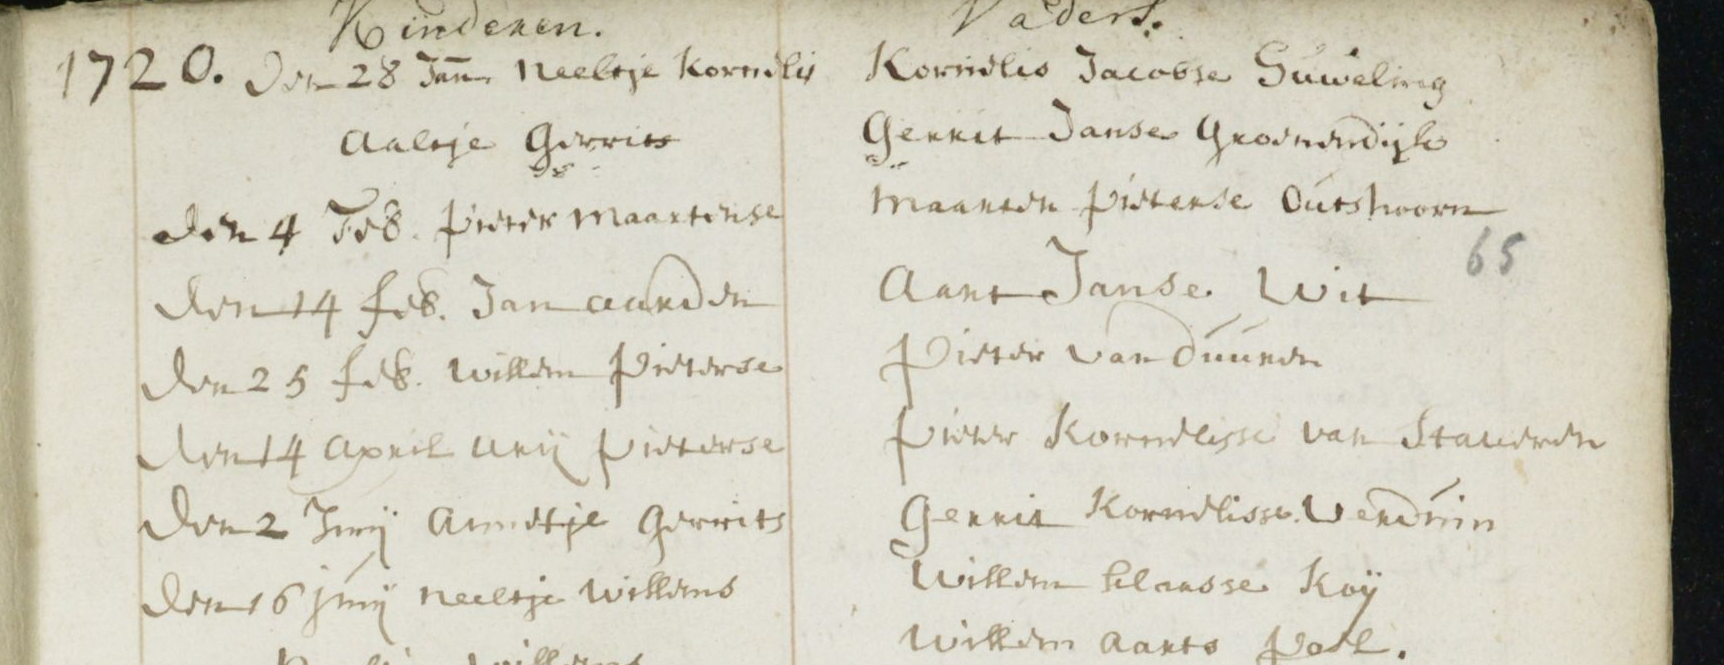 Kinderen. Vaders.
1720. Den 28 Jan. Neeltje Kornelis Kornelis Jacobse Suweling
Aaltje Gerrits Gerrit Janse Groenendijk
Den 4 Feb. Pieter Maartense Maarten Pieterse Outshoorn
65
Den 14 feb. Jan aarden Aart Janse Wit
Den 25 feb. Willem Pieterse Pieter van Duuren
Den 14 April Arij Pieterse Pieter Kornelisse van Staveren
Den 2 Junij Annetje Gerrits Gerrit Kornelisse Verduin
Den 16 junij Neeltje Willems Willem Klaasse Koÿ
Willems Willem Aarts Post.